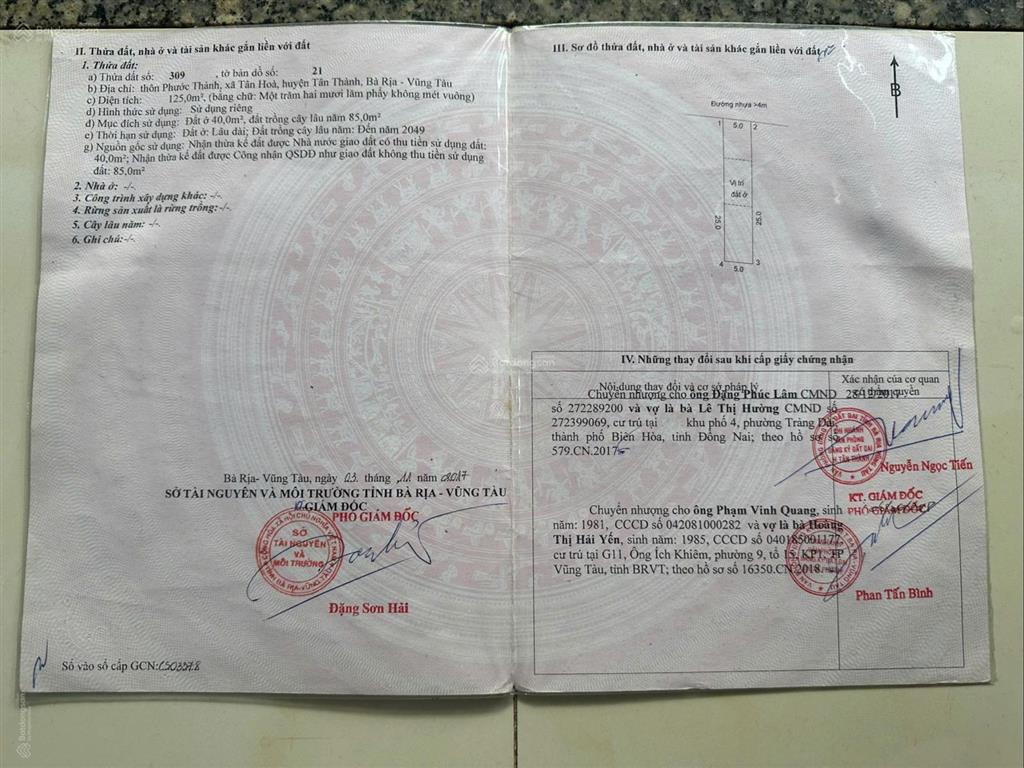 II. Thửa đất, nhà ở và tài sản khác gắn liền với đất
1. Thửa đất:
a) Thửa đất số: 309 , tờ bản đồ số: 21
b) Địa chỉ: thôn Phước Thành, xã Tân Hoà, huyện Tân Thành, Bà Rịa - Vũng Tàu
c) Diện tích: 125,0m², (bằng chữ: Một trăm hai mươi lăm phẩy không mét vuông)
d) Hình thức sử dụng: Sử dụng riêng
đ) Mục đích sử dụng: Đất ở 40,0m², đất trồng cây lâu năm 85,0m²
e) Thời hạn sử dụng: Đất ở: Lâu dài; Đất trồng cây lâu năm: Đến năm 2049
g) Nguồn gốc sử dụng: Nhận thừa kế đất được Nhà nước giao đất có thu tiền sử dụng đất:
40,0m²; Nhận thừa kế đất được Công nhận QSDĐ như giao đất không thu tiền sử dụng
đất: 85,0m²
2. Nhà ở: -/-
3. Công trình xây dựng khác: -/-
4. Rừng sản xuất là rừng trồng: -/-
5. Cây lâu năm: -/-
6. Ghi chú: -/-
Bà Rịa- Vũng Tàu, ngày 03 tháng 11 năm 2017
SỞ TÀI NGUYÊN VÀ MÔI TRƯỜNG TỈNH BÀ RỊA - VŨNG TÀU
GIÁM ĐỐC
PHÓ GIÁM ĐỐC
SỞ
TÀI NGUYÊN
VÀ
MÔI TRƯỜNG
Đặng Sơn Hải
Số vào sổ cấp GCN:
III. Sơ đồ thửa đất, nhà ở và tài sản khác gắn liền với đất
B
Đường nhựa >4m
1 5.0 2
Vị trí
đất ở
25.0 25.0
4 5.0 3
IV. Những thay đổi sau khi cấp giấy chứng nhận
Nội dung thay đổi và cơ sở pháp lý
Xác nhận của cơ quan
có thẩm quyền
Chuyển nhượng cho ông Đặng Phúc Lâm CMND
số 272289200 và vợ là bà Lê Thị Hường CMND số
272399069, cư trú tại khu phố 4, phường Trảng Dài,
thành phố Biên Hòa, tỉnh Đồng Nai; theo hồ sơ số
579.CN.2017
Nguyễn Ngọc Tiến
KT. GIÁM ĐỐC
PHÓ GIÁM ĐỐC
Chuyển nhượng cho ông Phạm Vinh Quang, sinh
năm: 1981, CCCD số 042081000282 và vợ là bà Hoàng
Thị Hải Yến, sinh năm: 1985, CCCD số 040185001177,
cư trú tại G11, Ông Ích Khiêm, phường 9, tổ 15, KP1, TP
Vũng Tàu, tỉnh BRVT; theo hồ sơ số 16350.CN.2018
Phan Tấn Bình